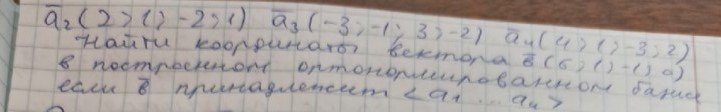 a̅₂(2; 1; -2; 1) a̅₃(-3; -1; 3; -2) a̅₄(4; 1; -3; 2)
Найти координаты вектора в̅(6; 1; -1; 0)
в построенном ортонормированном базисе
если в̅ принадлежит <a₁ ... a₄>